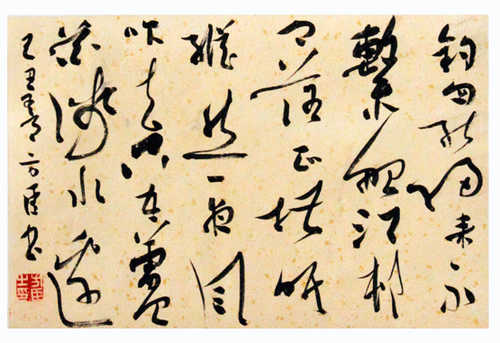 釣罷歸来不
繫船江村
月落正堪眠
縱然一夜風
吹去只在蘆
花淺水邊
己丑春方書